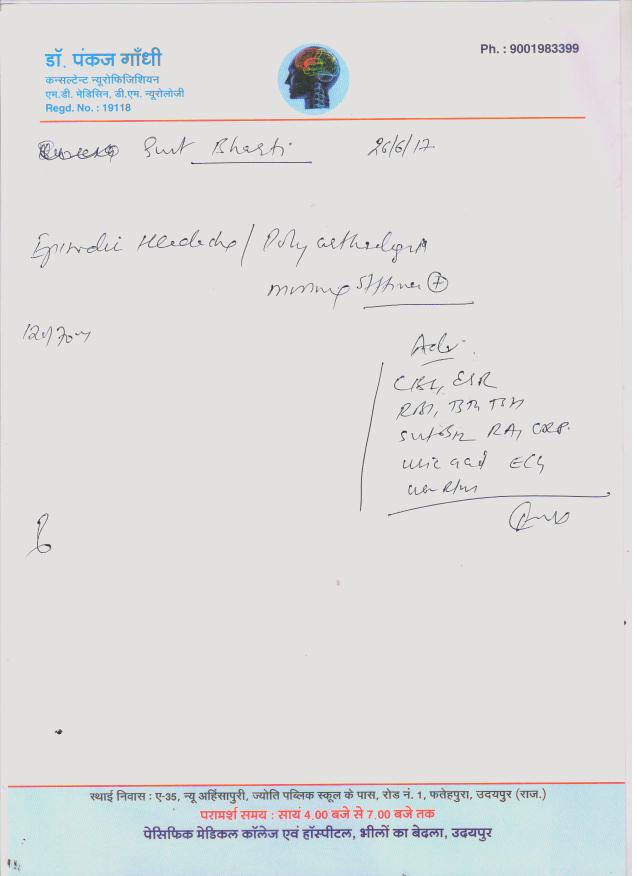 डॉ. पंकज गाँधी
कन्सल्टेन्ट न्यूरोफिजिशियन
एम.डी. मेडिसिन, डी.एम. न्यूरोलोजी
Regd. No. : 19118
Ph. : 9001983399
Smt Bharti 26/6/17
Episodic Headache / Polyarthralgia
morning stiffness +
120/70
Adv.
CBC, ESR
RA, CRP.
uric acid ECG
स्थाई निवास : ए-35, न्यू अहिंसापुरी, ज्योति पब्लिक स्कूल के पास, रोड नं. 1, फतेहपुरा, उदयपुर (राज.)
परामर्श समय : सायं 4.00 बजे से 7.00 बजे तक
पेसिफिक मेडिकल कॉलेज एवं हॉस्पीटल, भीलों का बेदला, उदयपुर